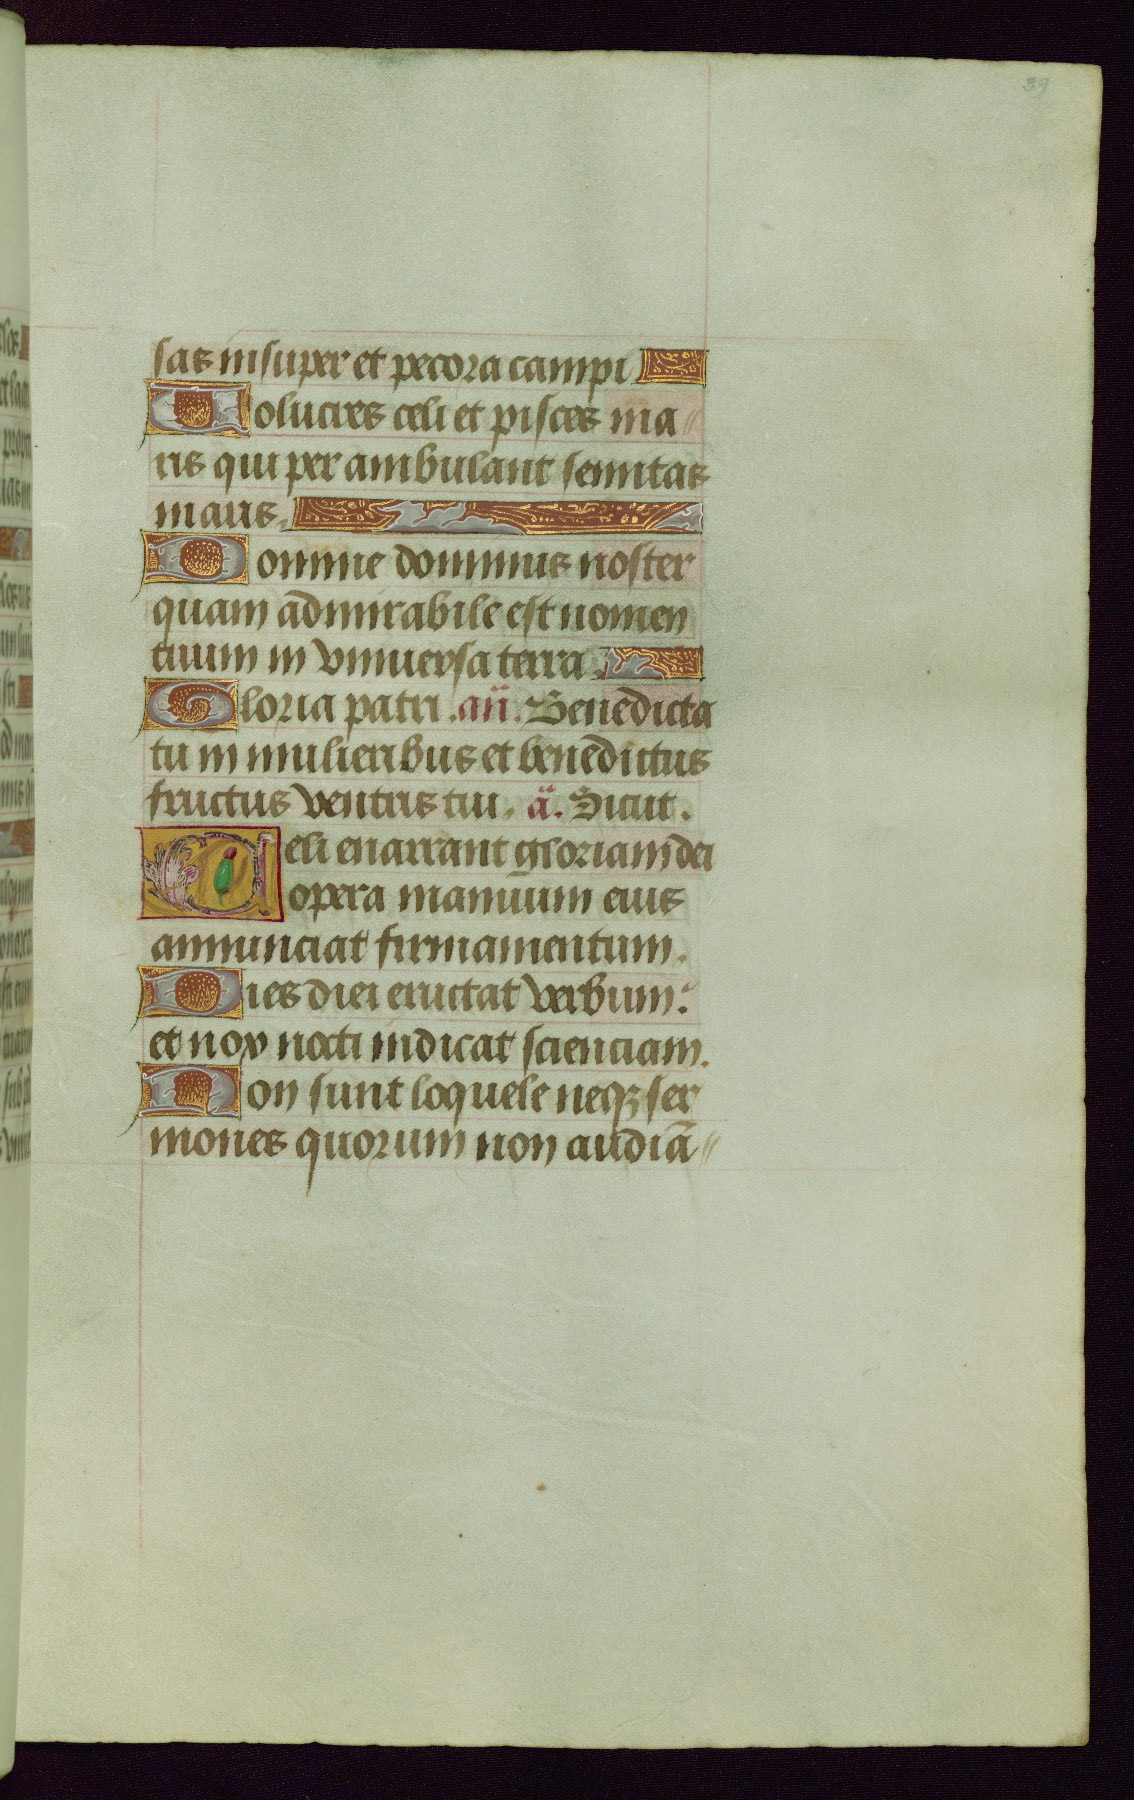 39
sas insuper et pecora campi
Volucres celi et pisces ma//
ris qui per ambulant semitas
maris.
Domine dominus noster
quam admirabile est nomen
tuum in vniuersa terra.
Gloria patri. añ. Benedicta
tu in mulieribus et benedictus
fructus ventris tui. ā. Sicut.
Celi enarrant gloriam dei
opera manuum eius
annunciat firmamentum.
Dies diei eructat verbum:
et nox nocti indicat scienciam.
Non sunt loquele neqꝫ ser
mones quorum non audiā//